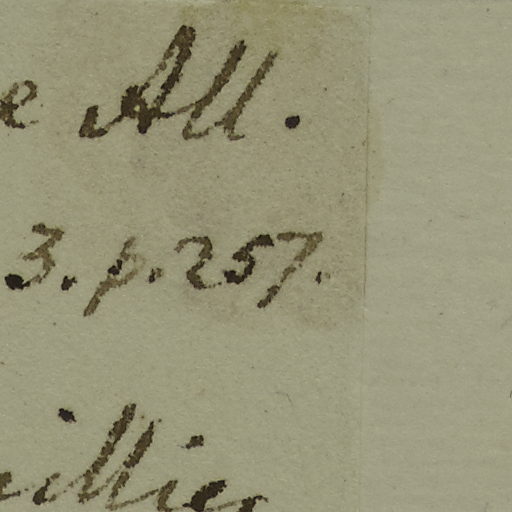 e All.
3. p. 257.
illier